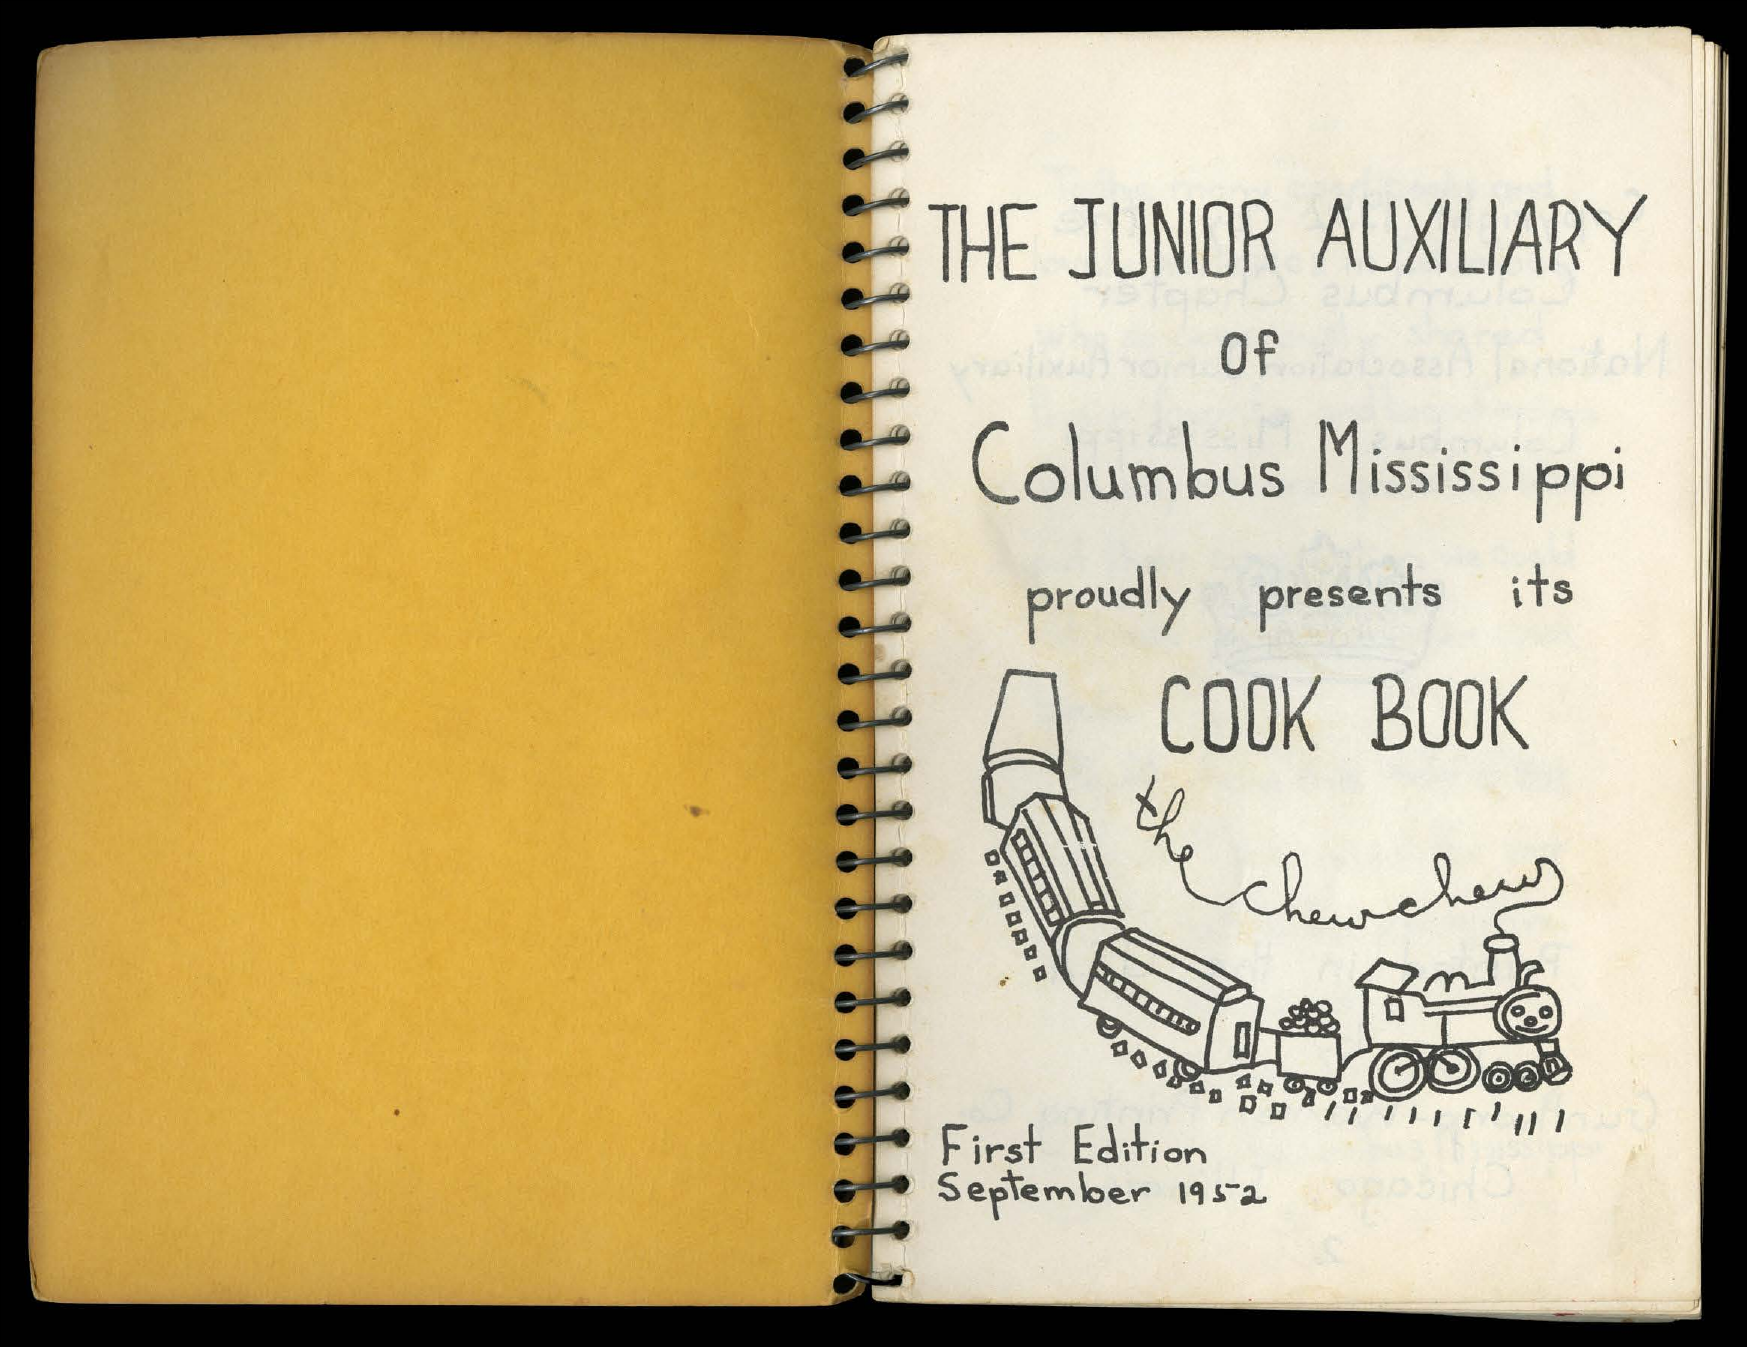 THE JUNIOR AUXILIARY
Of
Columbus Mississippi
proudly presents its
COOK BOOK
the chewchew
First Edition
September 1952